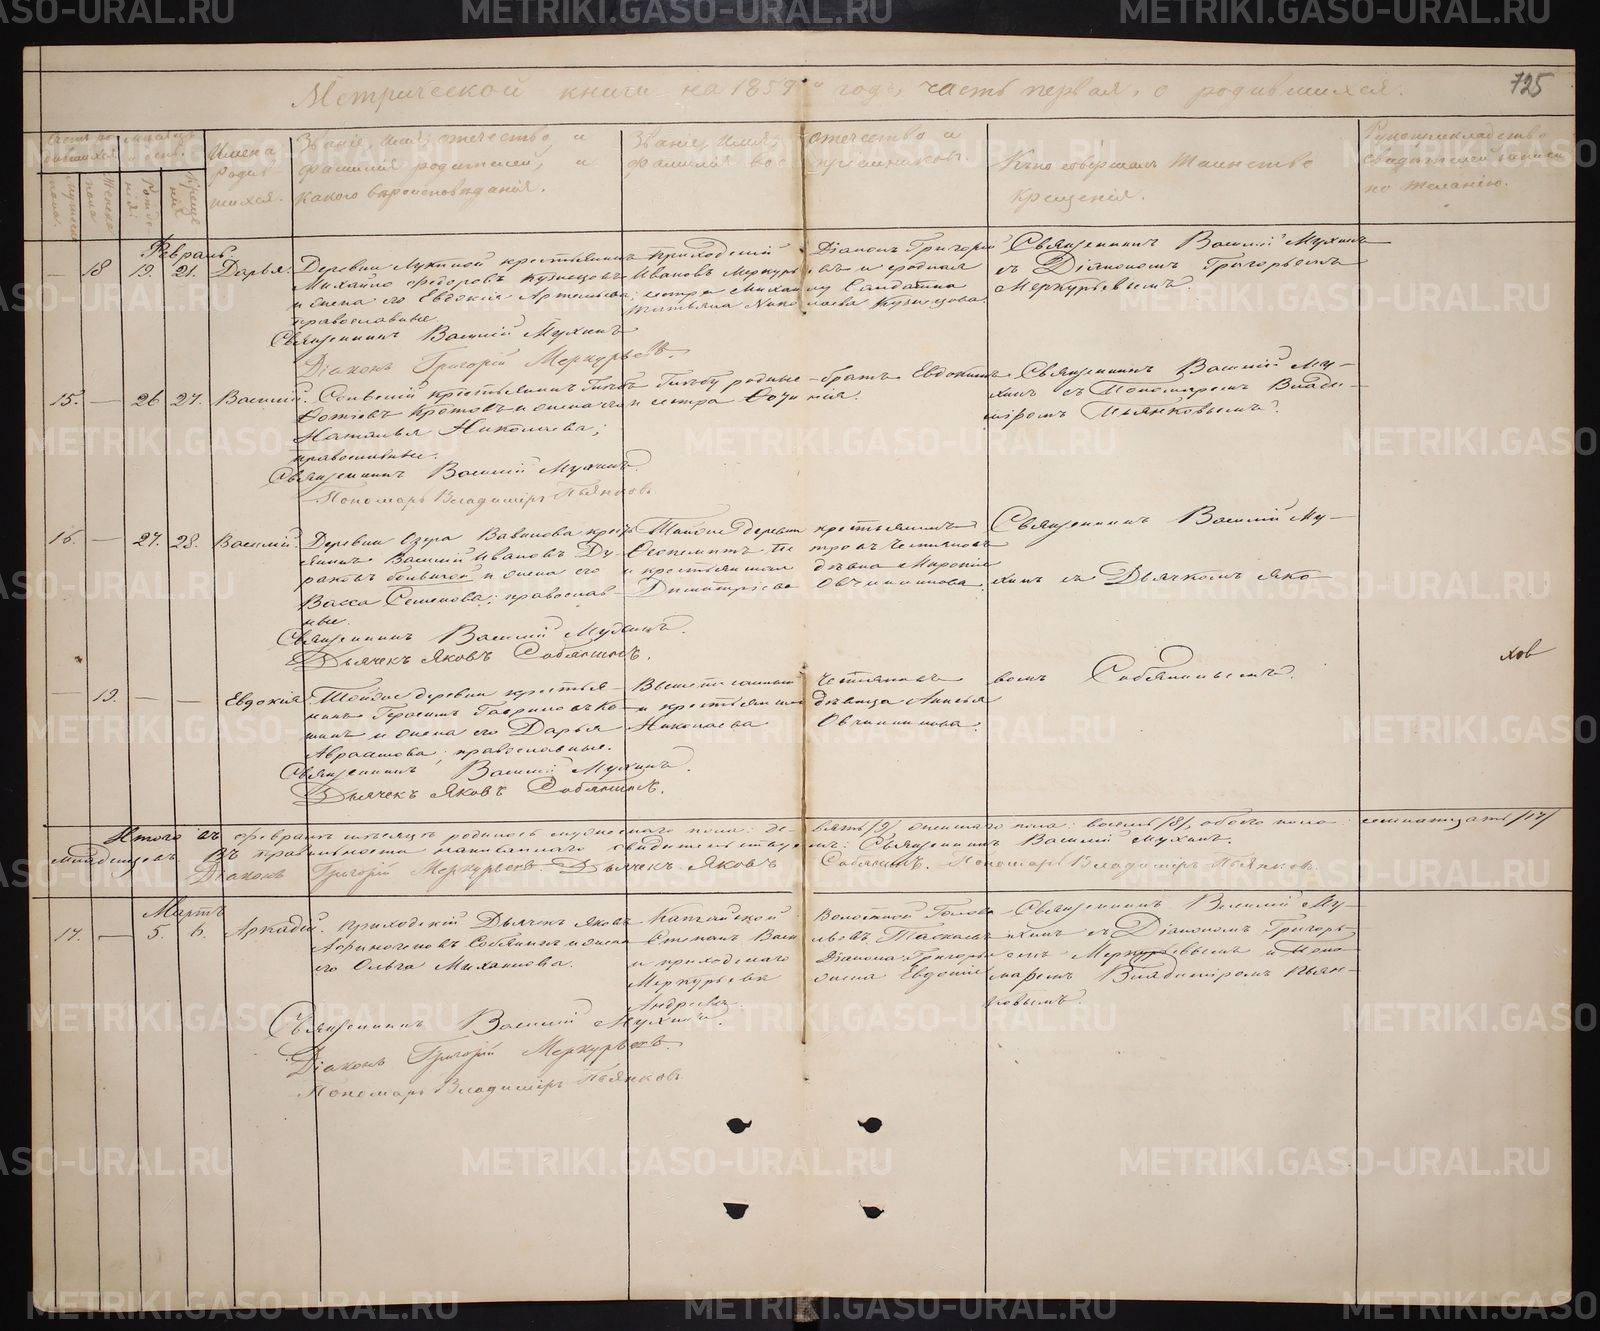 Метрической книги на 1859й годъ, часть первая, о родившихся.
725
Счетъ родившихся
Мужеска пола.
Женска пола
Месяцъ и день.
Рожденія.
Крещенія.
Имена родившихся.
Званіе, имя, отчество, и
фамилія родителей, и
какого вѣроисповѣданія.
Званіе, имя, отчество и
фамилія воспріемниковъ.
Кто совершалъ Таинство
крещенія.
Рукоприкладство
свидѣтелей записи
по желанію.
Февраль.
— 18 19. 21. Дарья.
Деревни крестьянинъ
Михайло Федоровъ Кузнецовъ
и жена его Евдокія Артемьева;
православные.
Священникъ Василій Мухинъ
Діаконъ Григорій Меркурьевъ.
приходскій Діаконъ Григорій
Ивановъ Меркурьевъ и родная
сестра Михайлу Солдатка
Татьяна Николаева Кузнецова.
Священникъ Василій Мухинъ
съ Діакономъ Григорьемъ
Меркурьевымъ.
15. — 26 27. Василій.
крестьянинъ Глѣбъ
Кротовъ и жена его
Наталья Николаева;
православные.
Священникъ Василій Мухинъ.
Пономарь Владиміръ Пьянковъ
Глѣбу родные братъ Евдокимъ
и сестра
Священникъ Василій Му-
хинъ съ Пономаремъ Влади-
міромъ Пьянковымъ.
16. — 27. 28. Василій.
Деревни Озера Вавилова кресть-
янинъ Василій Ивановъ Ду-
раковъ и жена его
Васса Семенова; православ-
ные.
Священникъ Василій Мухинъ.
Дьячекъ Яковъ Собянинъ.
Тойже деревни крестьянинъ
Пе-тровъ Честяковъ
и крестьянская дѣвица
Димитріева Овчинникова.
Священникъ Василій Му-
хинъ съ Дьячкомъ Яко-
— 19. — — Евдокія
Тойже деревни крестья-
нинъ Герасимъ Гавриловъ Ко-
шинъ и жена его Дарья
Авраамова; православные.
Священникъ Василій Мухинъ.
Дьячекъ Яковъ Собянинъ.
Вышеписанный Честяковъ
и крестьянская дѣвица Анисья
Николаева Овчинникова.
вомъ Собянинымъ.
хов
Итого въ Февралѣ мѣсяцѣ родилось мужескаго пола: де-вять /9/, женскаго пола: восемь /8/, обоего пола: семнатцать /17/
младенцевъ. Въ правильности написаннаго свидѣтельствуемъ: Священникъ Василій Мухинъ.
Діаконъ Григорій Меркурьевъ. Дьячекъ Яковъ Собянинъ. Пономарь Владиміръ Пьянковъ.
Мартъ
17. — 5. 6. Аркадій.
приходскій Дьячекъ Яковъ
Афиногеновъ Собянинъ и жена
его Ольга Михаилова.
Священникъ Василій Мухинъ.
Діаконъ Григорій Меркурьевъ.
Пономарь Владиміръ Пьянковъ.
Волостной Голова
Степанъ Васильевъ
и приходскаго Діакона Григорья
Меркурьева жена Евдокія
Андреева.
Священникъ Василій Му-
хинъ съ Діакономъ Григорь-
емъ Меркурьевымъ и Поно-
маремъ Владиміромъ Пьян-
ковымъ.
METRIKI.GASO-URAL.RU